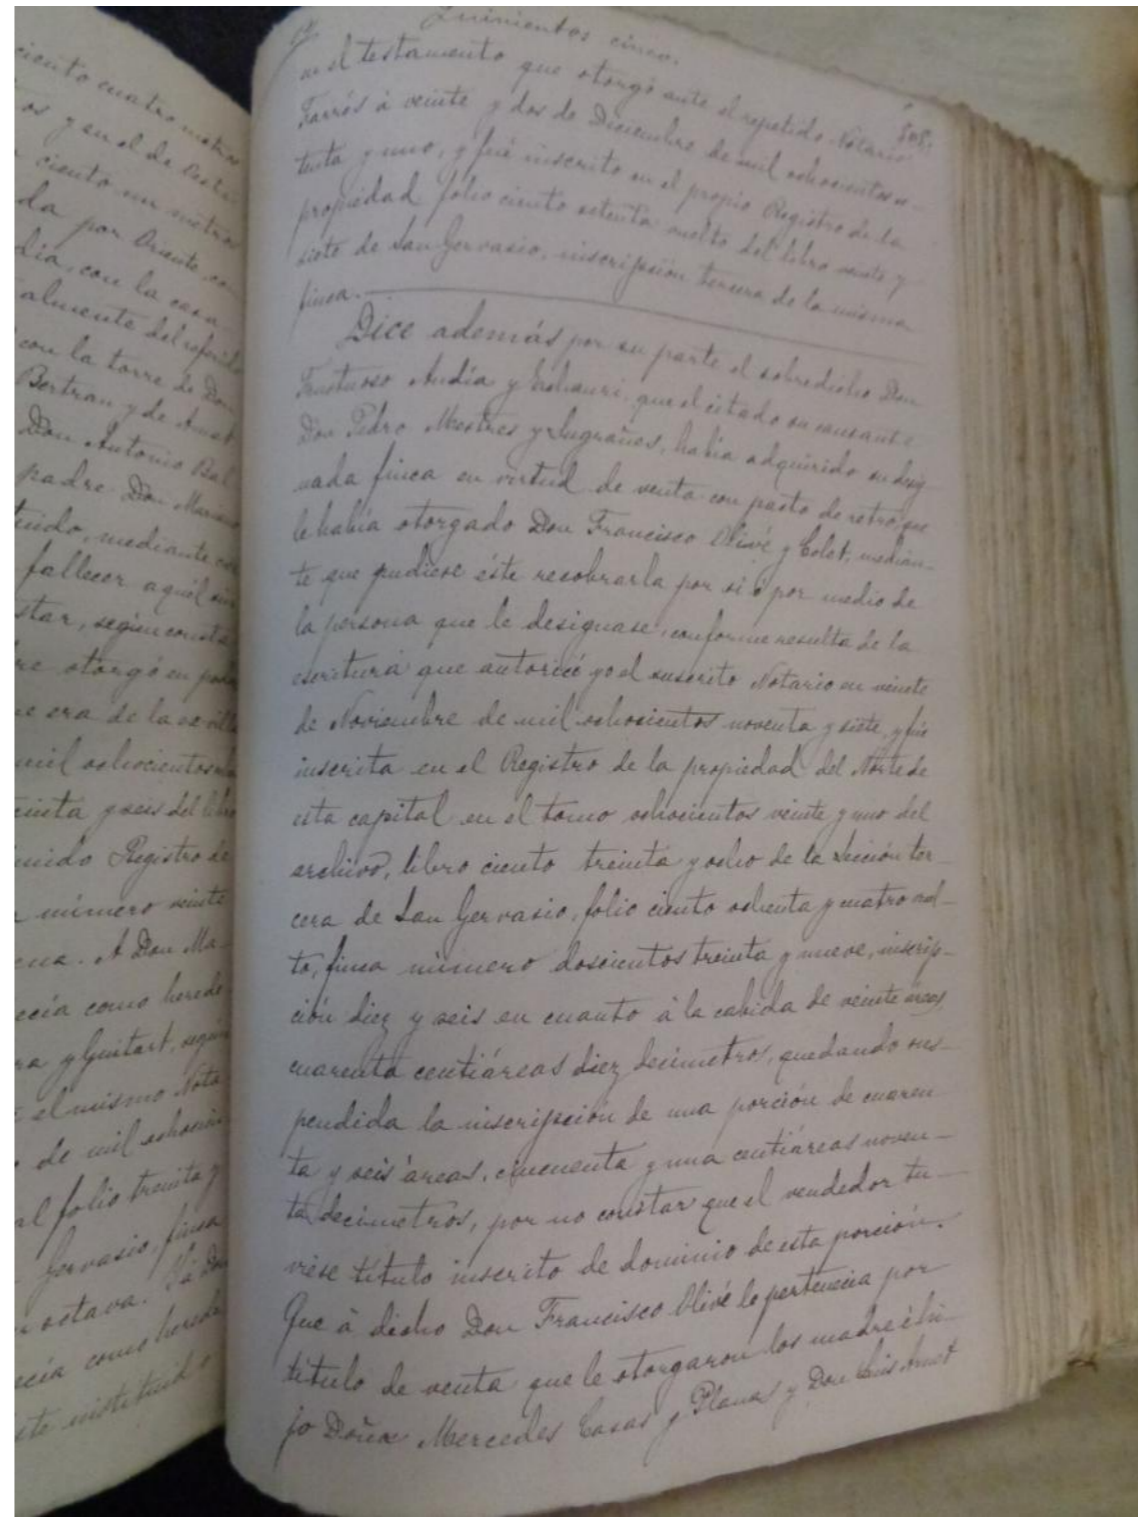 ciento cuatro metros
os y en el de
ciento un metros
da por Oriente con
dia, con la casa
almente del referido
con la torre de Don
Bertran y de Amat
Don Antonio Bal
padre Don Mariano
tuido, mediante
fallecer aquél sin
star, según consta
re otorgó en poder
e era de la
mil ochocientos
einta y seis del libro
Registro de
número veinte
ena. A Don Ma-
ecía como herede
ra y Guitart, según
el mismo Nota
de mil ochocien
al folio treinta y
Gervasio, finca
octava. Y á Don
ecía como herede
ste instituido
Quinientos cinco.
505.
en el testamento que otorgó ante el repetido Notario
Farrés á veinte y dos de Diciembre de mil ochocientos se-
tenta y uno, y fué inscrito en el propio Registro de la
propiedad folio ciento setenta vuelto del libro veinte y
siete de San Gervasio, inscripción tercera de la misma
finca.
Dice además por su parte el sobredicho Don
Fructuoso Andía y Echauri, que el citado su causante
Don Pedro Mestres y Sugrañes, había adquirido su desig-
nada finca en virtud de venta con pacto de retro que
le había otorgado Don Francisco Olivé y Colet, median-
te que pudiese éste recobrarla por sí ó por medio de
la persona que le designase, conforme resulta de la
escritura que autoricé yo el suscrito Notario en veinte
de Noviembre de mil ochocientos noventa y siete, y fué
inscrita en el Registro de la propiedad del Norte de
esta capital en el tomo ochocientos veinte y uno del
archivo, libro ciento treinta y ocho de la Sección ter-
cera de San Gervasio, folio ciento ochenta y cuatro vuel-
to, finca número doscientos treinta y nueve, inscrip-
ción diez y seis en cuanto á la cabida de veinte áreas,
cuarenta centiáreas diez decimetros, quedando sus-
pendida la inscripción de una porción de cuaren
ta y seis áreas, cincuenta y una centiáreas noven-
ta decimetros, por no constar que el vendedor tu-
viese título inscrito de dominio de esta porción.
Que á dicho Don Francisco Olivé le pertenecia por
título de venta que le otorgaron los madre é hi-
jo Doña Mercedes Casas y Planas y Don Luis Amet